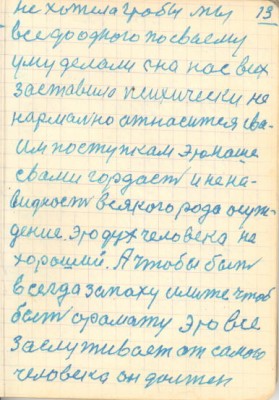 не хотела чтобы мы 13
все до одного по своему
уму делали она нас всех
заставило психически не
нармално отнасится сва-
им поступкам это наше
свами гордост и не на-
видност всякого рода осуж-
дение. это дух человека не
хороший. А чтобы быт
всегда запаху илиже чтоб
быт арамату это все
заслуживает от самого
человека он должен